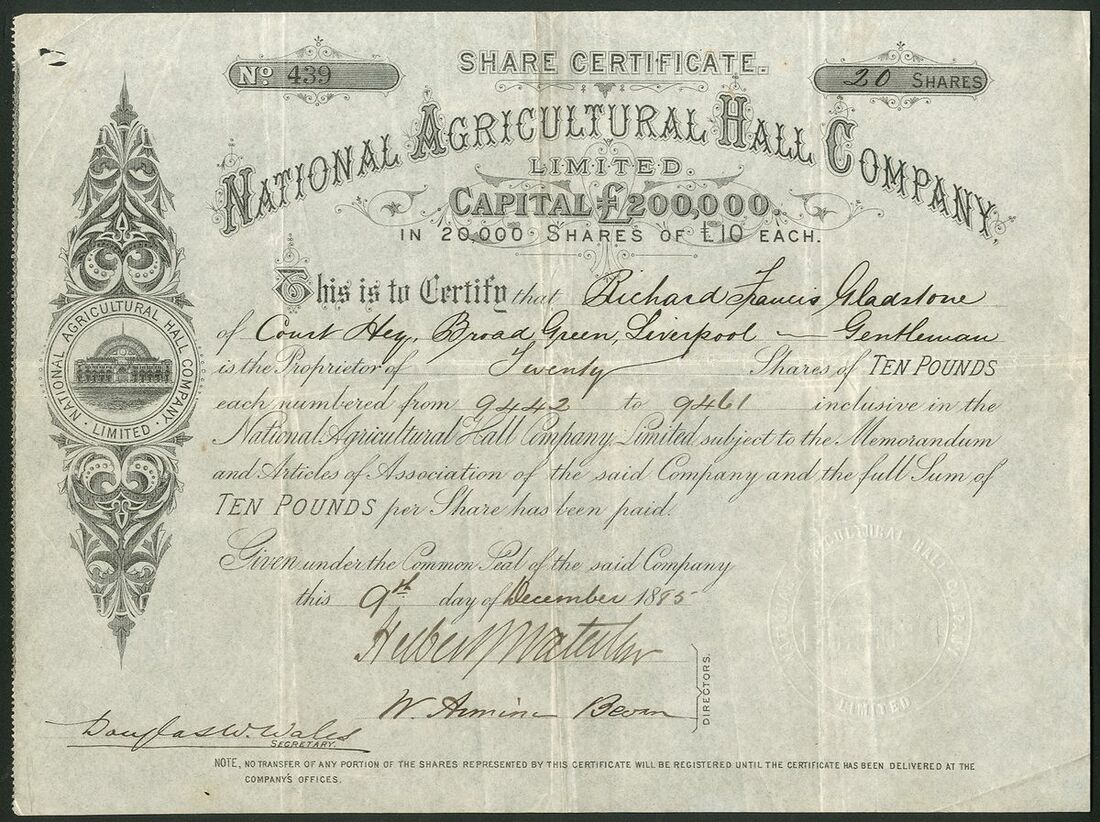 No 439
SHARE CERTIFICATE.
20 SHARES
NATIONAL AGRICULTURAL HALL COMPANY,
LIMITED.
CAPITAL £200,000,
IN 20,000 SHARES OF £10 EACH.
This is to Certify that Richard Francis Gladstone
of Court Hey, Broad Green, Liverpool — Gentleman
is the Proprietor of Twenty Shares of TEN POUNDS
each numbered from 9442 to 9461 inclusive in the
National Agricultural Hall Company Limited subject to the Memorandum
and Articles of Association of the said Company and the full Sum of
TEN POUNDS per Share has been paid.
Given under the Common Seal of the said Company
this 9th day of December 1885
W. Bevan
DIRECTORS.
Douglas W. Wales
SECRETARY.
NOTE, NO TRANSFER OF ANY PORTION OF THE SHARES REPRESENTED BY THIS CERTIFICATE WILL BE REGISTERED UNTIL THE CERTIFICATE HAS BEEN DELIVERED AT THE
COMPANY'S OFFICES.
NATIONAL AGRICULTURAL HALL COMPANY
· LIMITED ·
AGRICULTURAL HALL COMPANY
LIMITED